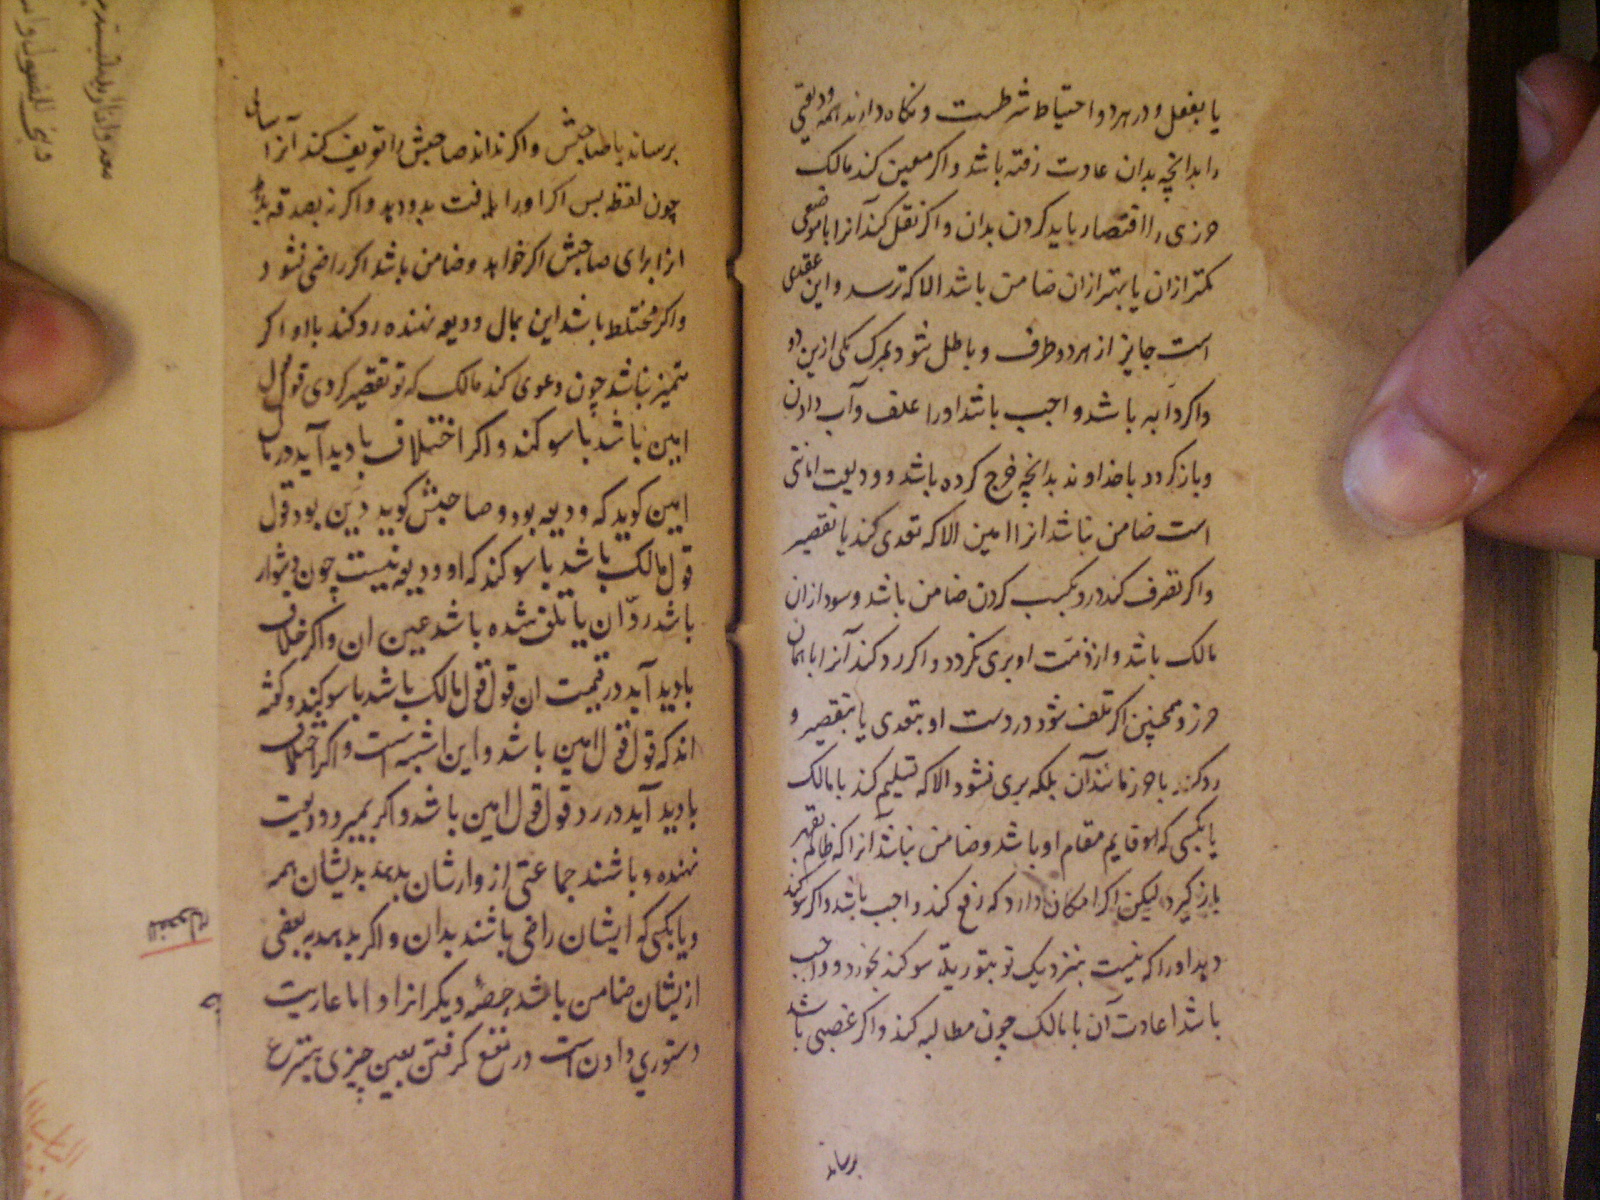 یا بفعل و در هر دو احتیاط شرطست و نکاه دارند همه ودیعتی
را بدانچه بدان عادت رفته باشد و اکر معین کند مالک
حرزی را اقتصار باید کردن بدان و اکر نقل کند آنرا با موضعی
کمتر ازان یا بهتر ازان ضامن باشد الا که ترسد و این عقدی
است جایز از هر دو طرف و باطل شود بمرک یکی ازین دو
و اکر دابه باشد واجب باشد اورا علف و آب دادن
و باز کردد با خداوند بدانچه خرج کرده باشد و ودیعت امانتی
است ضامن نباشد انرا امین الا که تعدی کند یا تقصیر
و اکر تصرف کند درو بکسب کردن ضامن باشد و سود ازان
مالک باشد و از ذمت او بری نکردد و اکر رد کند آنرا با همان
حرز و همچنین اکر تلف شود در دست او بتعدی یا بتقصیر و
رد کند با حرز مانند آن بلکه بری نشود الا که تسلیم کند با مالک
یا بکسی که او قایم مقام او باشد و ضامن نباشد آنرا که ظالم بقهر
باز کیرد لیکن اکر امکان دارد که دفع کند واجب باشد و اکر سوکند
دهد اورا که نیست بنزدیک تو بتوریه سوکند بخورد و واجب
باشد اعادت آن با مالک چون مطالبه کند و اکر غصبی باشد
برساند
برساند با صاحبش و اکر نداند صاحبش را تعریف کند آنرا
چون لقطه پس اکر اورا یافت بدو دهد و اکر نه بصدقه بدهد
از برای صاحبش اکر خواهد و ضامن باشد اکر راضی نشود
و اکر مختلط باشد این بمال ودیعه نهنده رد کند باو اکر
متمیز نباشد چون دعوی کند مالک که تو تقصیر کردی قول قول
امین باشد با سوکند و اکر اختلاف بادید آید در مال
امین کوید که ودیعه بود و صاحبش کوید دین بود قول
قول مالک باشد با سوکند که او ودیعه نیست چون دشوار
باشد ردّ ان یا تلف شده باشد عین ان و اکر خلاف
بادید آید در قیمت ان قول قول مالک باشد با سوکند و کفته
اند که قول قول امین باشد و این اشبه است و اکر اختلاف
بادید آید در رد قول قول امین باشد و اکر بمیرد ودیعت
نهنده و باشند جماعتی از وارثان بدهد بدیشان همه
و یا بکسی که ایشان راضی باشند بدان و اکر بدهد به بعضی
ازیشان ضامن باشد حصهٔ دیکرانرا و اما عاریت
دستوری دادن است در نفع کرفتن بعین چیزی بتبرع